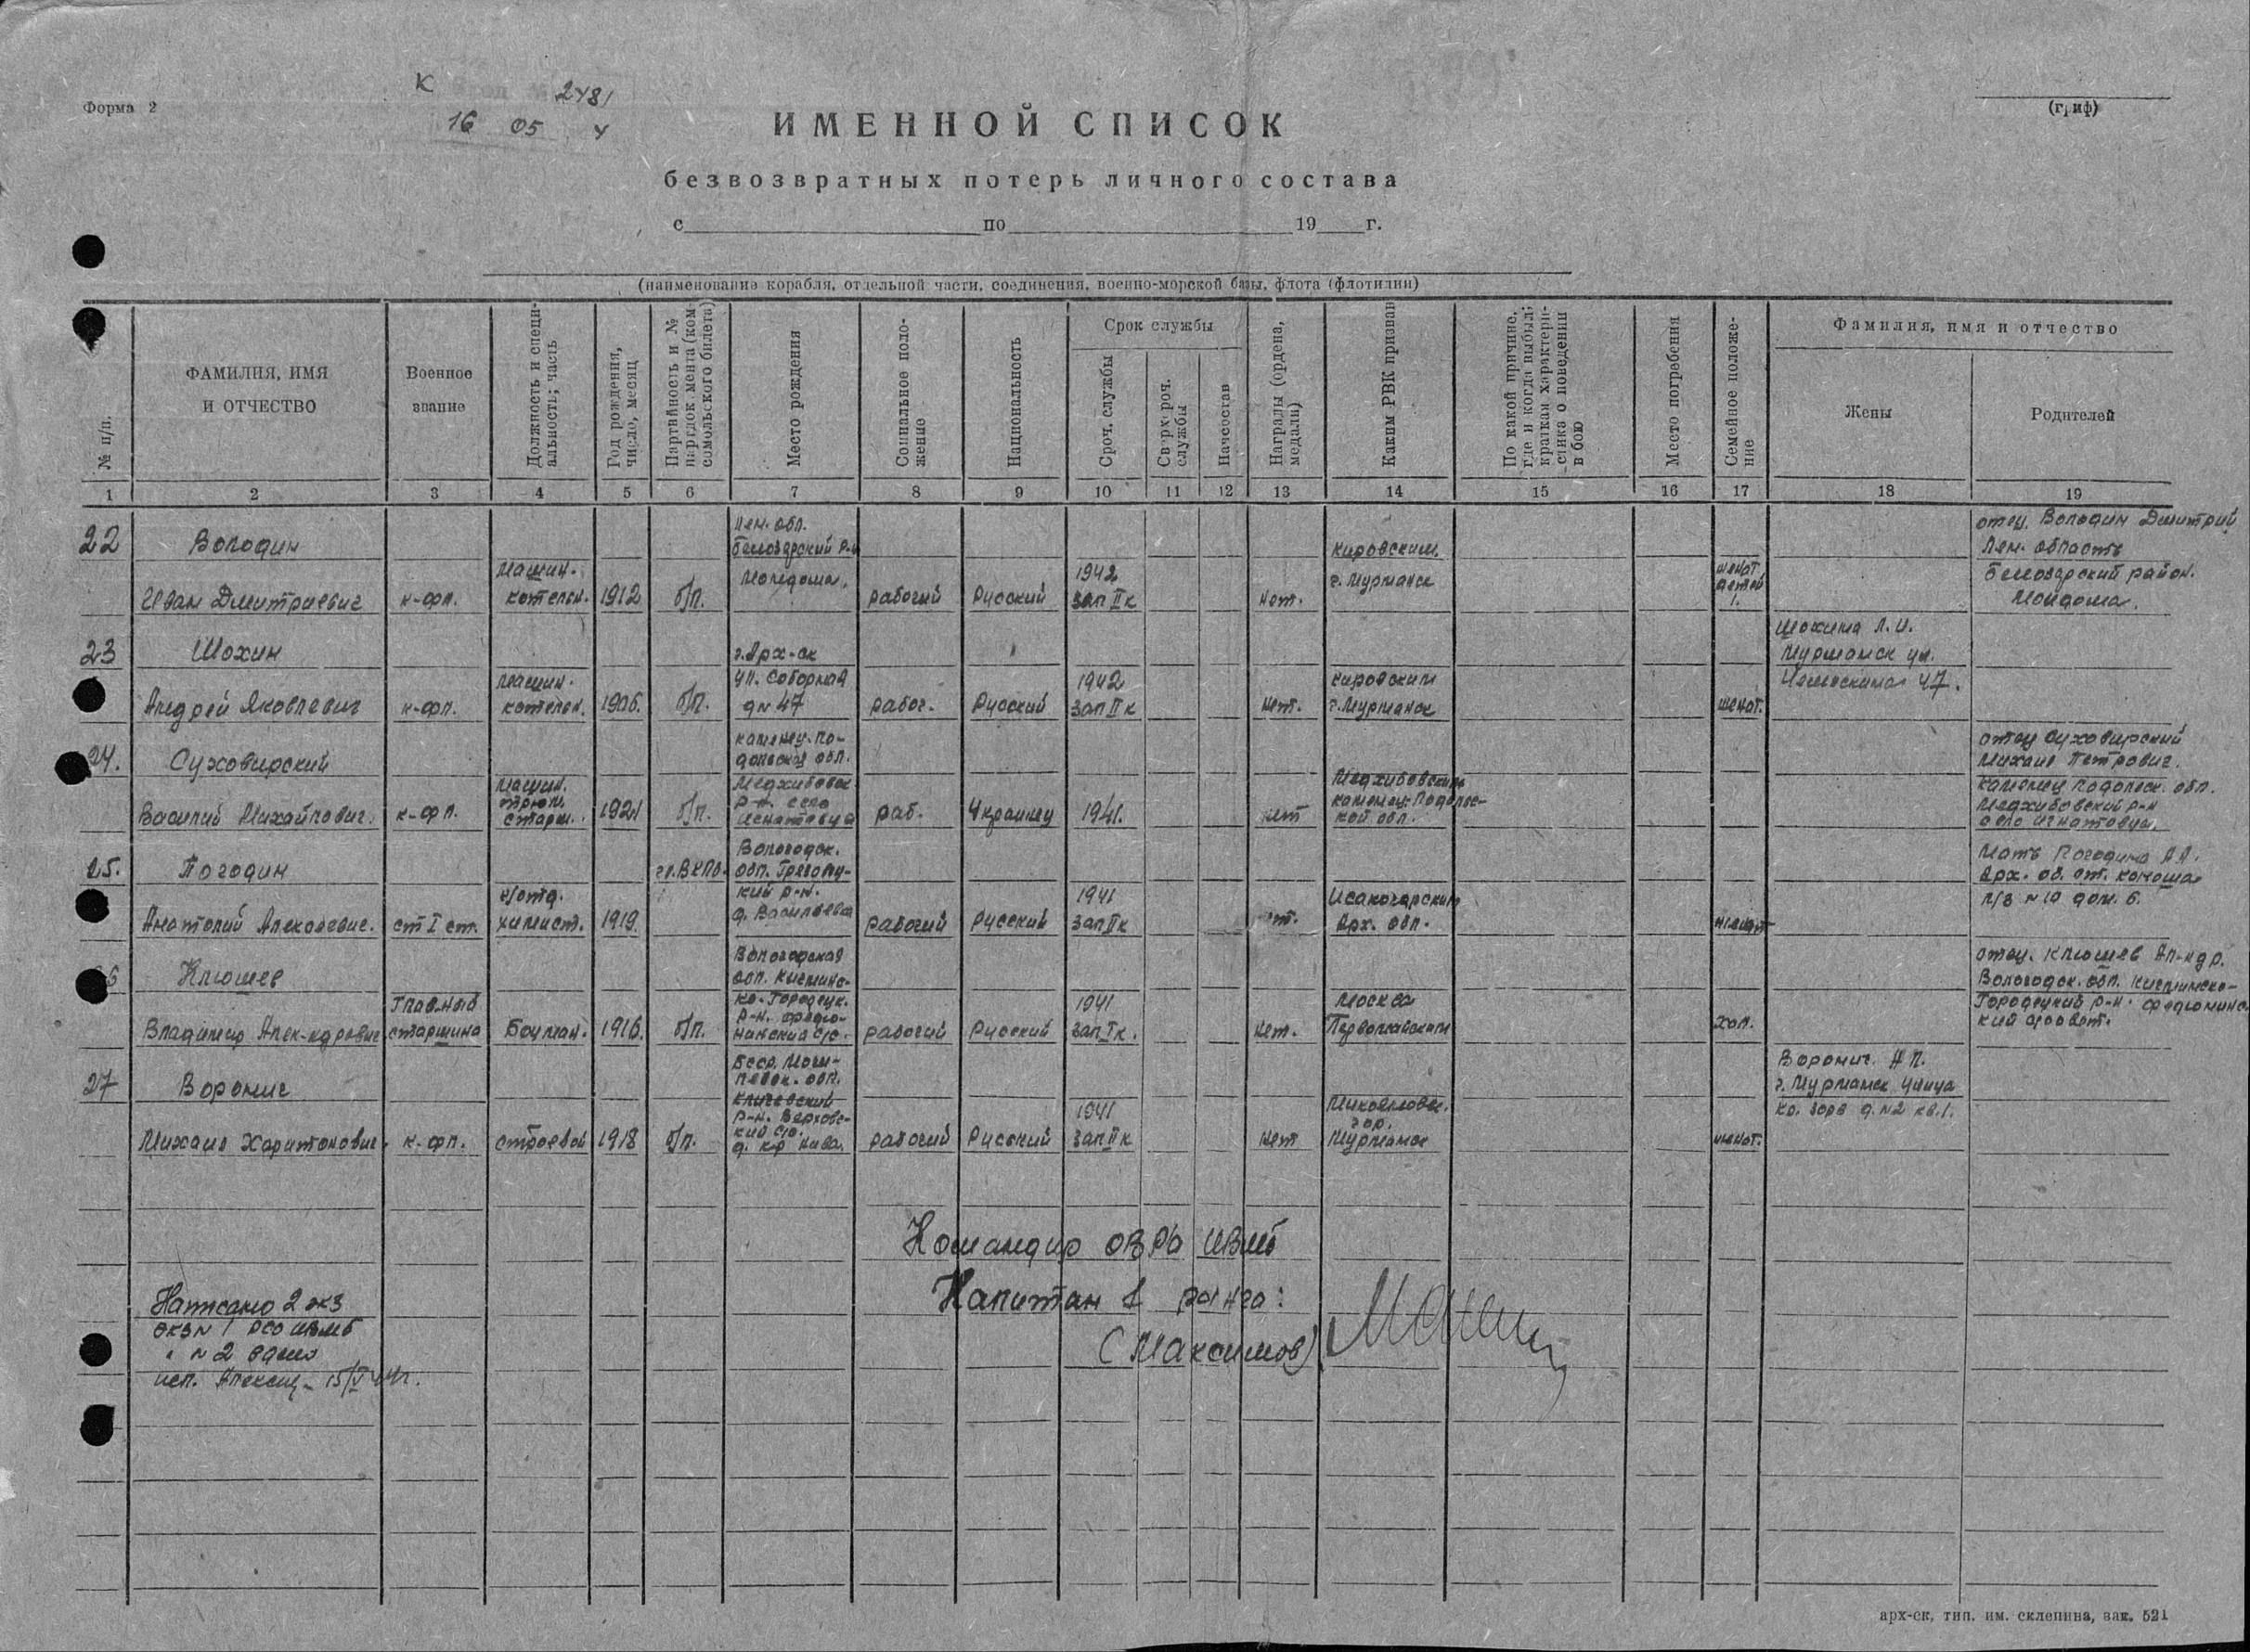 Форма 2
К 2481
16 05 4
(гриф)
ИМЕННОЙ СПИСОК
безвозвратных потерь личного состава
с по 19 г.
(наименование корабля, отдельной части, соединения, военно-морской базы, флота (флотилии)
№ п/п.
ФАМИЛИЯ, ИМЯ
И ОТЧЕСТВО
Военное
звание
Должность и специ-
альность; часть
Год рождения,
число, месяц
Партийность и №
партдокумента (ком-
сомольского билета)
Место рождения
Социальное поло-
жение
Национальность
Срок службы
Сроч. службы
Сверхсроч.
службы
Начсостав
Награды (ордена,
медали)
Каким РВК призван
По какой причине,
где и когда выбыл;
краткая характери-
стика о поведении
в бою
Место погребения
Семейное положе-
ние
Фамилия, имя и отчество
Жены
Родителей
1 2 3 4 5 6 7 8 9 10 11 12 13 14 15 16 17 18 19
22 Володин
Иван Дмитриевич
к-фл.
машин.
котельн.
1912
б/п.
Лен. обл.
Белозерский р-н
рабочий
Русский
1942
зап II к
нет.
Кировским
г. Мурманск
женат
детей
1.
отец. Володин Дмитрий
Лен. область
Белозерский район.
23 Шохин
Андрей Яковлевич
к-фл.
машин.
котельн.
1906.
б/п.
г. Арх-ск
ул. Соборная
д № 47
рабоч.
Русский
1942
зап II к
нет.
Кировским
г. Мурманск
женат.
Шохина Л. И.
Мурманск ул.
47.
24. Суховирский
Василий Михайлович.
к-фл.
машин.
трюм.
старш.
1921
б/п.
Каменец-По-
дольская обл.
Меджибовск.
р-н. село
Игнатовца
раб.
Украинец
1941.
нет
Меджибовским
Каменец-Подольс-
кой обл.
отец Суховирский
Михаил Петрович.
Каменец Подольск. обл.
Меджибовский р-н
село Игнатовца.
25. Погодин
Анатолий Алексеевич.
ст I ст.
к/отд.
химист.
1919.
чл. ВКПб.
Вологодск.
обл. Грязовец-
кий р-н.
д. Васильева
рабочий
Русский
1941
зап II к
нет.
Исакогорским
Арх. обл.
женат
Мать Погодина А А.
Арх. об. ст. Коноша
п/я № 10 дом. 6.
26 Клюшев
Владимир Алек-ндрович
Главный
старшина
Боцман.
1916.
б/п.
Вологодская
обл. Кичминс-
ко-Городецк.
р-н.
рабочий
Русский
1941
зап I к.
нет.
Москва
Первомайским
хол.
отец. Клюшев Ал-ндр.
Вологодск. обл. Кичминско-
Городецкий р-н.
27 Воронич
Михаил Харитонович.
к-фл.
строевой
1918
б/п.
БССР. Моги-
левск. обл.
Кличевский
р-н. Верховс-
кий с/с.
д. Кр Нива.
рабочий
Русский
1941
зап II к
нет
Микояновск.
гор.
Мурманск
женат.
Воронич. А П.
г. Мурманск улица
д. № 2 кв. 1.
Командир ОВРа ИВМБ
Капитан 1 ранга:
(Максимов)
Написано 2 экз
экз № 1 РСО ИВМБ
" № 2 дело
исп. 15/V 44г.
арх-ск, тип. им. склепина, зак. 521